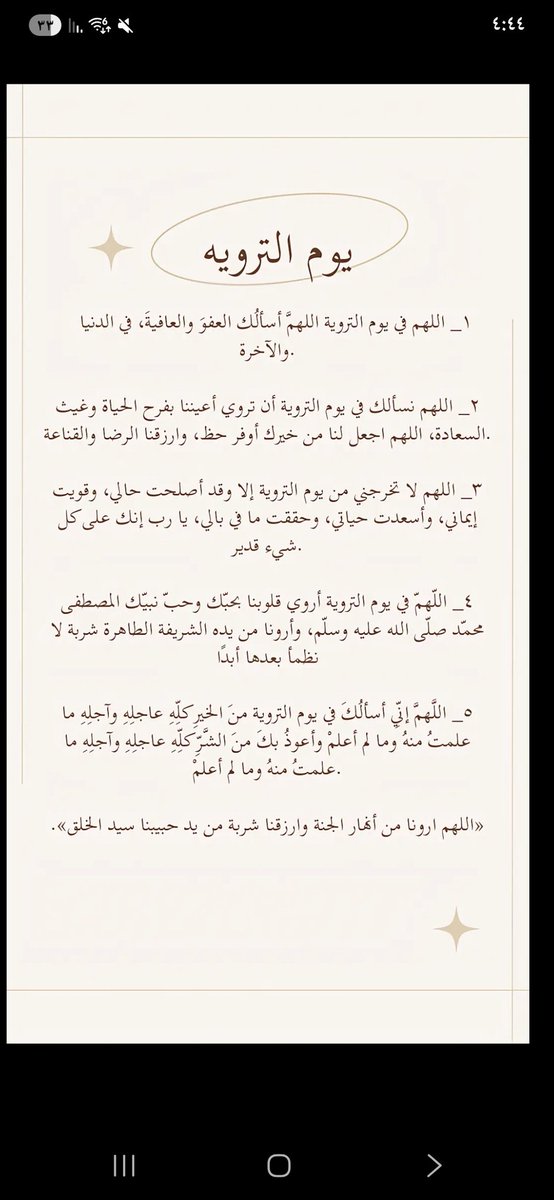 ٣٣
٤:٤٤
يوم الترويه
١_ اللهم في يوم التروية اللهمَّ أسألُك العفوَ والعافيةَ، في الدنيا
والآخرة.
٢_ اللهم نسألك في يوم التروية أن تروي أعيننا بفرح الحياة وغيث
السعادة، اللهم اجعل لنا من خيرك أوفر حظ، وارزقنا الرضا والقناعة.
٣_ اللهم لا تخرجني من يوم التروية إلا وقد أصلحت حالي، وقويت
إيماني، وأسعدت حياتي، وحققت ما في بالي، يا رب إنك على كل
شيء قدير.
٤_ اللّهمّ في يوم التروية أروي قلوبنا بحبّك وحبّ نبيّك المصطفى
محمّد صلّى الله عليه وسلّم، وأرونا من يده الشريفة الطاهرة شربة لا
نظمأ بعدها أبدًا
٥_ اللَّهمَّ إنِّي أسألُكَ في يوم التروية منَ الخيرِ كلِّهِ عاجلِهِ وآجلِهِ ما
علمتُ منهُ وما لم أعلمْ وأعوذُ بكَ منَ الشَّرِّ كلِّهِ عاجلِهِ وآجلِهِ ما
علمتُ منهُ وما لم أعلمْ.
«اللهم ارونا من أنهار الجنة وارزقنا شربة من يد حبيبنا سيد الخلق».